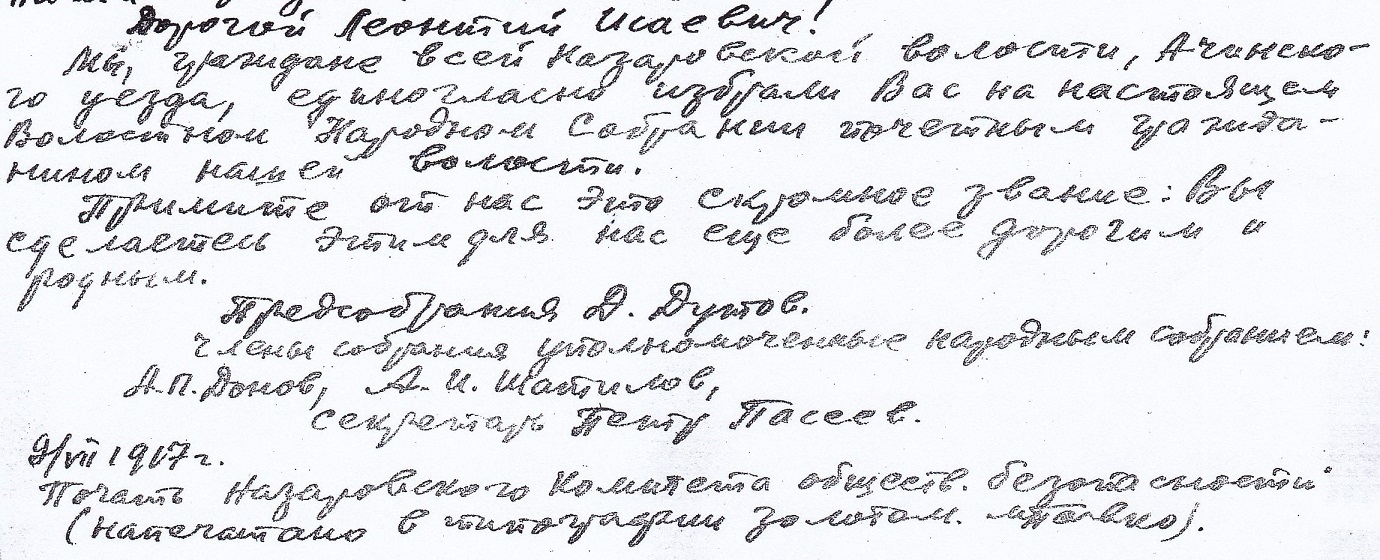 Дорогой Леонтий Исаевич!
Мы, граждане всей Назаровской волости, Ачинско-
го уезда, единогласно избрали Вас на настоящем
Волостном Народном Собрании почетным гражда-
нином нашей волости.
Примите от нас это скромное звание: Вы
сделаетесь этим для нас еще более дорогим и
родным.
Предсобрания Д. Дутов.
члены собрания уполномоченные народным собранием:
А.П. Донов, А. И. Шатилов,
секретарь Петр Пасеев.
9/VII 1917 г.
Печать Назаровского Комитета обществ. безопасности
(напечатано в типографии золотом.